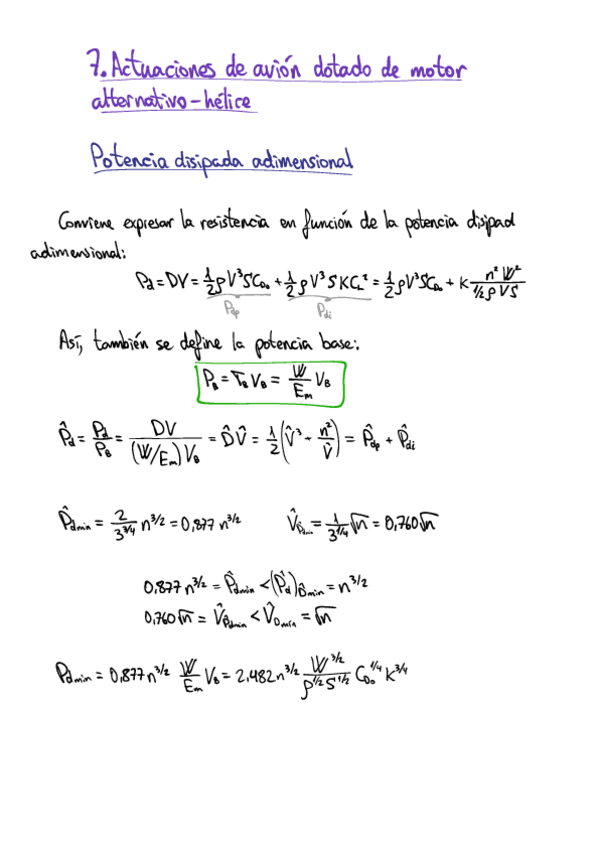 7. Actuaciones de avión dotado de motor
alternativo-hélice
Potencia disipada adimensional
Conviene expresar la resistencia en función de la potencia disipad
adimensional:
Pd = DV = 1/2 ρV³SC_D0 + 1/2 ρV³SKC_L² = 1/2 ρV³SC_D0 + K n²W²/(1/2 ρVS)
Pdp Pdi
Así, también se define la potencia base:
P_B = T_B V_B = W/E_m V_B
P̂d = Pd/P_B = DV/((W/E_m)V_B) = D̂V̂ = 1/2 (V̂³ + n²/V̂) = P̂dp + P̂di
P̂dmin = 2/3^(3/4) n^(3/2) = 0,877 n^(3/2) V̂_P̂dmin = 1/3^(1/4) √n = 0,760√n
0,877 n^(3/2) = P̂dmin < (P̂d)_D̂min = n^(3/2)
0,760√n = V̂_P̂dmin < V̂_Dmín = √n
Pdmin = 0,877 n^(3/2) W/E_m V_B = 2,482 n^(3/2) W^(3/2)/(ρ^(1/2) S^(1/2)) C_D0^(1/4) K^(3/4)